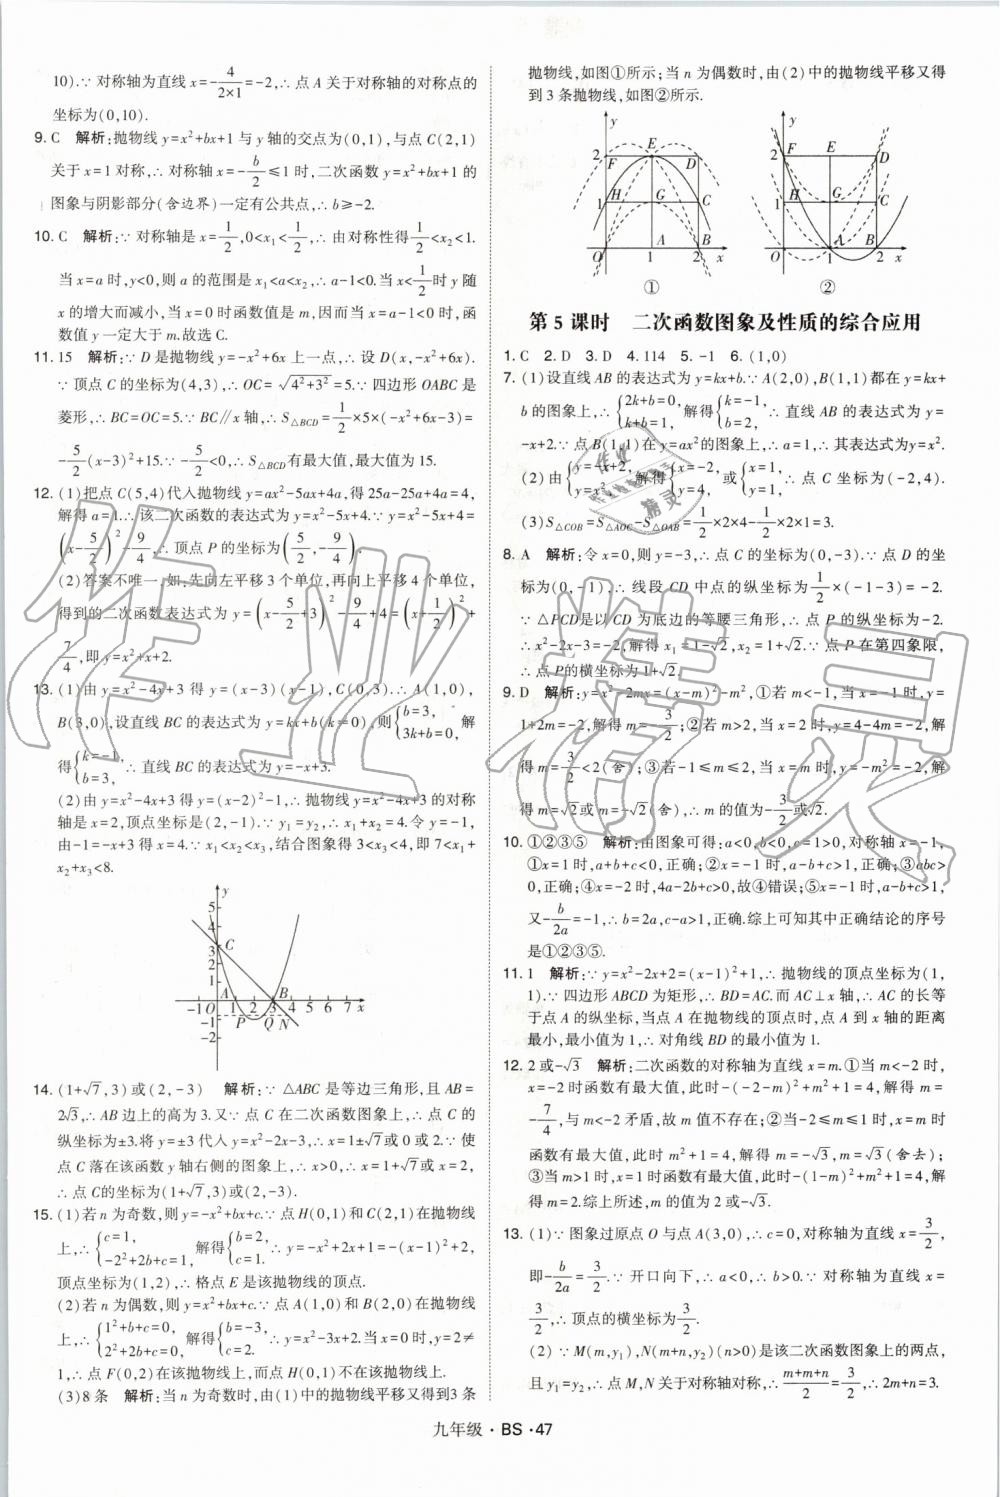 10).∵对称轴为直线 x=-4/(2×1)=-2,∴点 A 关于对称轴的对称点的
坐标为(0,10).
9. C 解析:抛物线 y=x²+bx+1 与 y 轴的交点为(0,1),与点 C(2,1)
关于 x=1 对称,∴对称轴 x=-b/2≤1 时,二次函数 y=x²+bx+1 的
图象与阴影部分(含边界)一定有公共点,∴b≥-2.
10. C 解析:∵对称轴是 x=1/2,0<x₁<1/2,∴由对称性得1/2<x₂<1.
当 x=a 时,y<0,则 a 的范围是 x₁<a<x₂,∴a-1<0,当 x<1/2时 y 随
x 的增大而减小,当 x=0 时函数值是 m.因此当 x=a-1<0 时,函
数值 y 一定大于 m.故选 C.
11. 15 解析:∵D 是抛物线 y=-x²+6x 上一点,∴设 D(x,-x²+6x).
∵顶点 C 的坐标为(4,3),∴OC=√(4²+3²)=5.∵四边形 OABC 是
菱形,∴BC=OC=5.∵BC∥x 轴,∴S△BCD=1/2×5×(-x²+6x-3)=
-5/2(x-3)²+15.∵-5/2<0,∴S△BCD有最大值,最大值为 15.
12. (1)把点 C(5,4)代入抛物线 y=ax²-5ax+4a,得 25a-25a+4a=4,
解得 a=1.∴该二次函数的表达式为 y=x²-5x+4.∵y=x²-5x+4=
(x-5/2)²-9/4,∴顶点 P 的坐标为(5/2,-9/4).
(2)答案不唯一,如,先向左平移 3 个单位,再向上平移 4 个单位,
得到的二次函数表达式为 y=(x-5/2+3)²-9/4+4=(x+1/2)²+
7/4,即 y=x²+x+2.
13. (1)由 y=x²-4x+3 得 y=(x-3)(x-1),C(0,3).∴A(1,0),
B(3,0),设直线 BC 的表达式为 y=kx+b(k≠0),则{b=3, 3k+b=0,解
得{k=-1, b=3,∴直线 BC 的表达式为 y=-x+3.
(2)由 y=x²-4x+3 得 y=(x-2)²-1,∴抛物线 y=x²-4x+3 的对称
轴是 x=2,顶点坐标是(2,-1).∵y₁=y₂,∴x₁+x₂=4.令 y=-1,
由-1=-x+3 得 x=4.∵x₁<x₂<x₃,结合图象得 3<x₃<4,即 7<x₁+
x₂+x₃<8.
y
5
4
3 C
2
1
A B
-1 O 1 2 3 4 5 6 7 x
-1 P Q N
-2
14. (1+√7,3)或(2,-3) 解析:∵△ABC 是等边三角形,且 AB=
2√3,∴AB 边上的高为 3.又∵点 C 在二次函数图象上,∴点 C 的
纵坐标为±3.将 y=±3 代入 y=x²-2x-3,∴x=1±√7或 0 或 2.∵使
点 C 落在该函数 y 轴右侧的图象上,∴x>0,∴x=1+√7或 x=2,
∴点 C的坐标为(1+√7,3)或(2,-3).
15. (1)若 n 为奇数,则 y=-x²+bx+c.∵点 H(0,1)和 C(2,1)在抛物线
上,∴{c=1, -2²+2b+c=1,解得{b=2, c=1.∴y=-x²+2x+1=-(x-1)²+2,
顶点坐标为(1,2),∴格点 E 是该抛物线的顶点.
(2)若 n 为偶数,则 y=x²+bx+c.∵点 A(1,0)和 B(2,0)在抛物线
上,∴{1²+b+c=0, 2²+2b+c=0,解得{b=-3, c=2.∴y=x²-3x+2.当 x=0 时,y=2≠
1,∴点 F(0,2)在该抛物线上,而点 H(0,1)不在该抛物线上.
(3)8 条 解析:当 n 为奇数时,由(1)中的抛物线平移又得到3 条
抛物线,如图①所示;当 n 为偶数时,由(2)中的抛物线平移又得
到 3 条抛物线,如图②所示.
y
2 F E D
1 H G C
O A 1 B 2 x
①
y
2 F E D
1 H G C
O 1 A B 2 x
②
第 5 课时 二次函数图象及性质的综合应用
1. C 2. D 3. D 4. 114 5. -1 6. (1,0)
7. (1)设直线 AB 的表达式为 y=kx+b.∵A(2,0),B(1,1)都在 y=kx+
b 的图象上,∴{2k+b=0, k+b=1,解得{k=-1, b=2,∴直线 AB 的表达式为 y=
-x+2.∵点 B(1,1)在 y=ax²的图象上,∴a=1,∴其表达式为 y=x².
(2)由{y=-x+2, y=x²,解得{x=-2, y=4或{x=1, y=1,∴点 C 坐标为(-2,4).
(3)S△COB=S△AOC-S△OAB=1/2×2×4-1/2×2×1=3.
8. A 解析:令 x=0,则 y=-3,∴点 C 的坐标为(0,-3).∵点 D 的坐
标为(0,1),∴线段 CD 中点的纵坐标为1/2×(-1-3)=-2.
∵△PCD是以 CD 为底边的等腰三角形,∴点 P 的纵坐标为-2.
∴x²-2x-3=-2,解得 x₁=1-√2,x₂=1+√2.∵点 P 在第四象限,
∴点 P的横坐标为1+√2.
9. D 解析:y=x²-2mx=(x-m)²-m²,①若 m<-1,当 x=-1 时,y=
1+2m=-2,解得 m=-3/2;②若 m>2,当 x=2 时,y=4-4m=-2,解
得 m=3/2<2(舍);③若-1≤m≤2,当 x=m 时,y=-m²=-2,解
得 m=√2或 m=-√2(舍),∴m 的值为-3/2或√2.
10. ①②③⑤ 解析:由图象可得:a<0,b<0,c=1>0,对称轴 x=-1,
①x=1 时,a+b+c<0,正确;②x=-1 时,a-b+c>1,正确;③abc>
0,正确;④x=-2 时,4a-2b+c>0,故④错误;⑤x=-1 时,a-b+c>1,
又-b/2a=-1,∴b=2a,c-a>1,正确.综上可知其中正确结论的序号
是①②③⑤.
11. 1 解析:∵y=x²-2x+2=(x-1)²+1,∴抛物线的顶点坐标为(1,
1).∵四边形 ABCD 为矩形,∴BD=AC.而 AC⊥x 轴,∴AC 的长等
于点 A 的纵坐标,当点 A 在抛物线的顶点时,点 A 到 x 轴的距离
最小,最小值为 1,∴对角线 BD 的最小值为 1.
12. 2 或-√3 解析:二次函数的对称轴为直线 x=m.①当 m<-2 时,
x=-2 时函数有最大值,此时-(-2-m)²+m²+1=4,解得 m=
-7/4,与 m<-2 矛盾,故 m 值不存在;②当-2≤m≤1 时,x=m 时,
函数有最大值,此时 m²+1=4,解得 m=-√3,m=√3(舍去);
③当 m>1 时,x=1 时函数有最大值,此时-(1-m)²+m²+1=4,解
得 m=2.综上所述,m 的值为 2 或-√3.
13. (1)∵图象过原点 O 与点 A(3,0),∴c=0,对称轴为直线 x=3/2,
即-b/2a=3/2.∵开口向下,∴a<0,∴b>0.∵对称轴为直线 x=
3/2,∴顶点的横坐标为3/2.
(2)∵M(m,y₁),N(m+n,y₂)(n>0)是该二次函数图象上的两点,
且 y₁=y₂,∴点 M,N 关于对称轴对称,∴(m+m+n)/2=3/2,∴2m+n=3.
九年级·BS·47
作业精灵